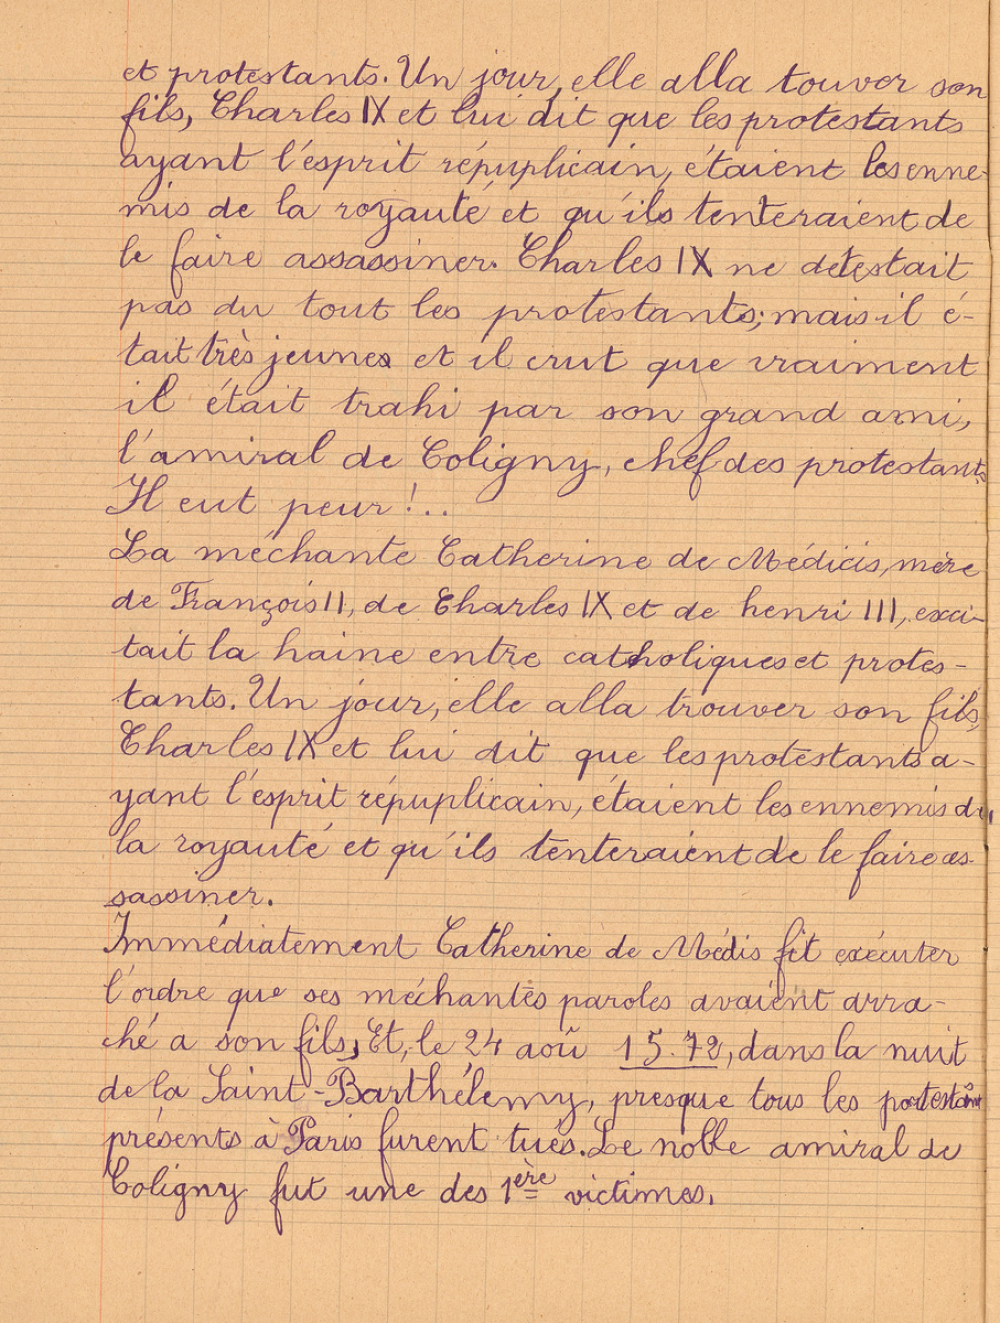 et protestants. Un jour, elle alla touver son
fils, Charles IX et lui dit que les protestants
ayant l'esprit répuplicain, étaient les enne-
mis de la royauté et qu'ils tenteraient de
le faire assassiner. Charles IX ne détestait
pas du tout les protestants; mais il é-
tait très jeunes et il crut que vraiment
il était trahi par son grand ami,
l'amiral de Coligny, chef des protestants.
Il eut peur!..
La méchante Catherine de Médicis, mère
de François II, de Charles IX et de henri III, exci-
tait la haine entre catholiques et protes-
tants. Un jour, elle alla trouver son fils,
Charles IX et lui dit que les protestants a-
yant l'esprit répuplicain, étaient les ennemis de
la royauté et qu'ils tenteraient de le faire as-
sassiner.
Immédiatement Catherine de Médis fit exécuter
l'ordre que ses méchantes paroles avaient arra-
ché a son fils, Et, le 24 aoû 15.72, dans la nuit
de la Saint-Barthélemy, presque tous les
présents à Paris furent tués. Le noble amiral de
Coligny fut une des 1ère victimes.